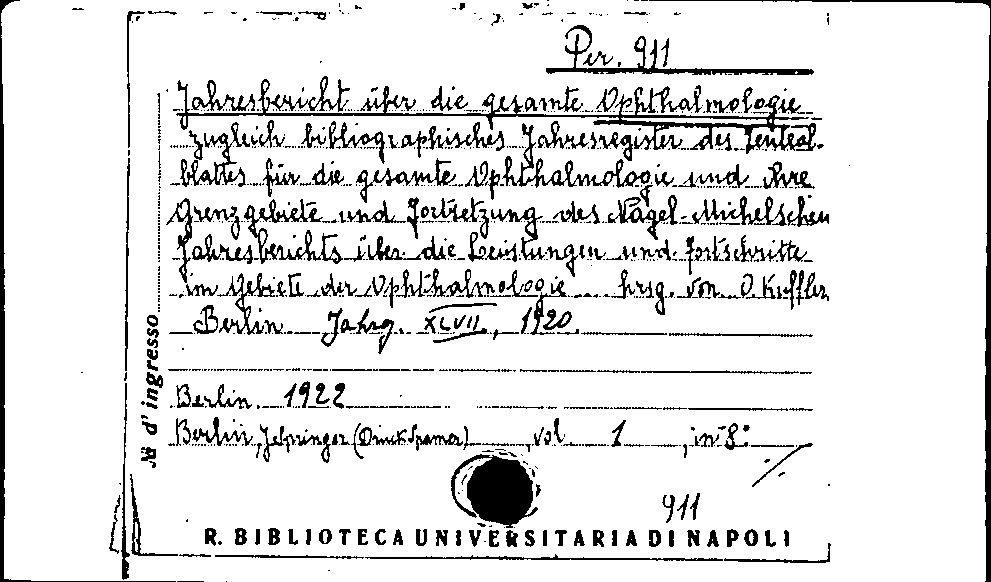 Per. 911
Jahresbericht über die gesamte Ophthalmologie
zugleich bibliographisches Jahresregister des Zentral-
blattes für die gesamte Ophthalmologie und ihre
Grenzgebiete und Fortsetzung des Nagel-Michelschen
Jahresberichts über die Leistungen und Fortschritte
im Gebiete der Ophthalmologie... hrsg. von O. Kuffler
Berlin Jahrg. XLVII, 1920.
N d'ingresso
Berlin. 1922
Berlin, J. Springer (Druck Spamer) , vol 1 , in-8°
911
R. BIBLIOTECA UNIVERSITARIA DI NAPOLI